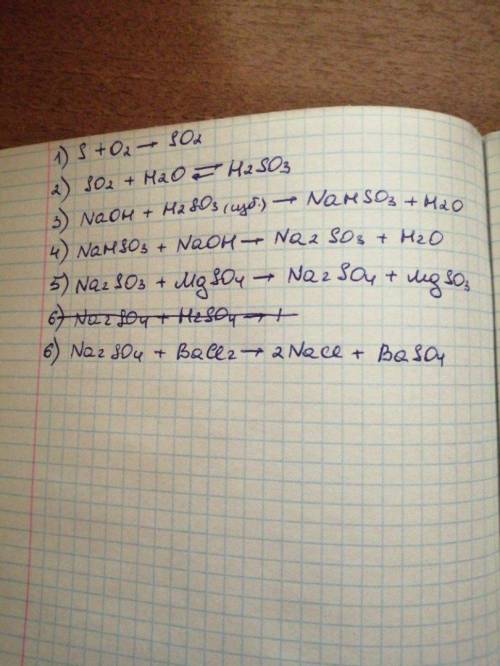 1) S + O2 → SO2
2) SO2 + H2O ⇌ H2SO3
3) NaOH + H2SO3 (изб.) → NaHSO3 + H2O
4) NaHSO3 + NaOH → Na2SO3 + H2O
5) Na2SO3 + MgSO4 → Na2SO4 + MgSO3
6) Na2SO4 + H2SO4 →
6) Na2SO4 + BaCl2 → 2NaCl + BaSO4